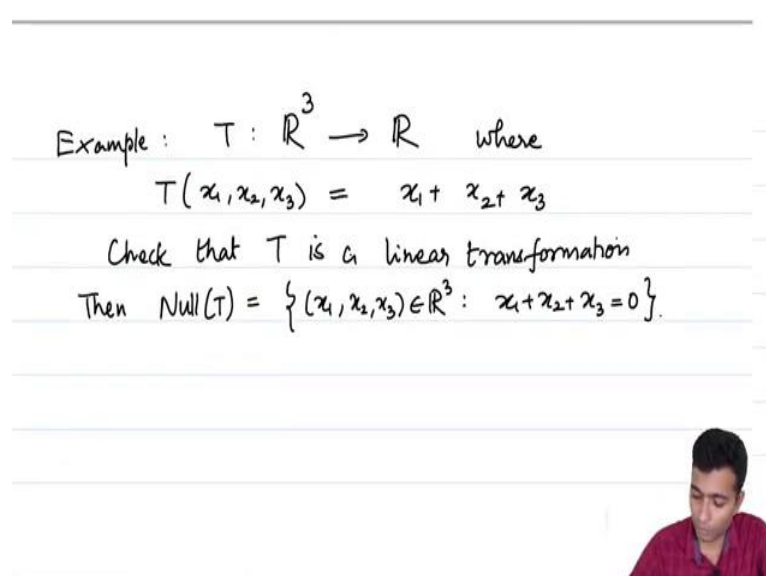 Example : T : ℝ³ → ℝ where
T(x₁, x₂, x₃) = x₁ + x₂ + x₃
Check that T is a linear transformation
Then Null(T) = {(x₁, x₂, x₃) ∈ ℝ³ : x₁ + x₂ + x₃ = 0}.